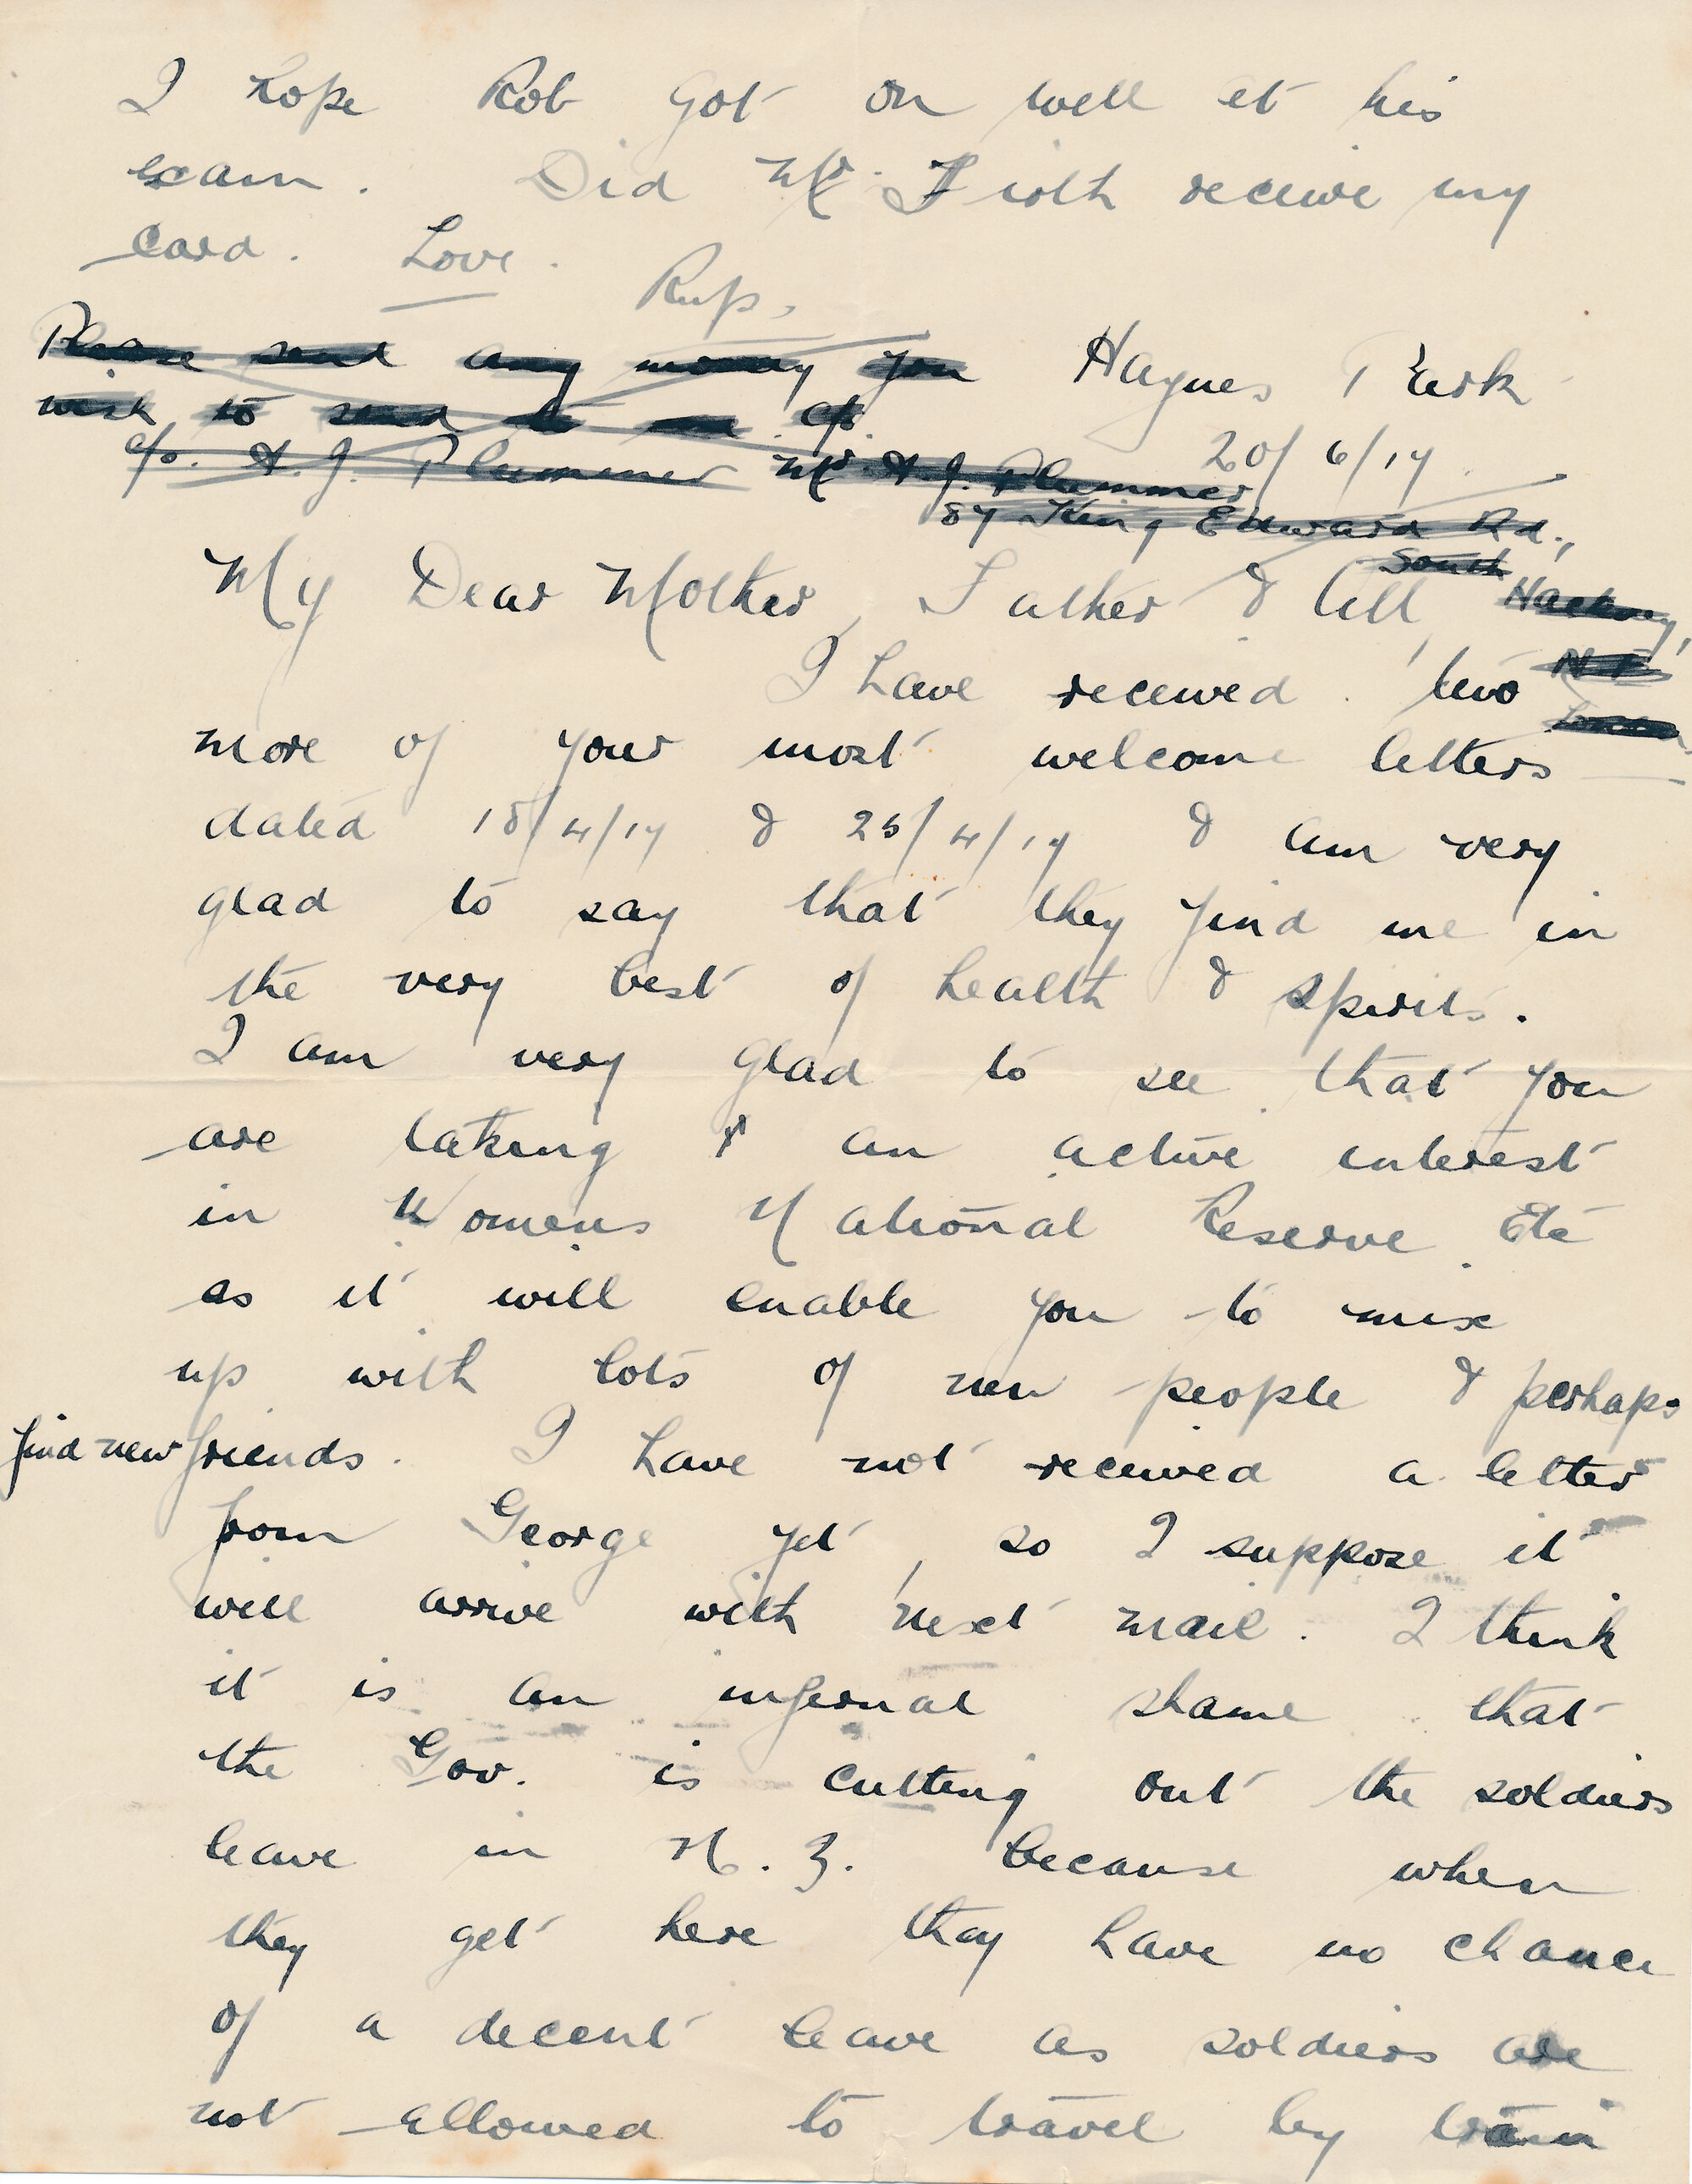 I hope Rob got on well at his
exam. Did Mr. Frith receive my
card. Love.
Rup.
Please send any money you
wish to send to me c/o.
c/o. A. J. Plummer Mr. A. J. Plummer
87 King Edward Rd.,
South
Hackney,
N.E.
London
Haynes Park
20/6/17
My Dear Mother, Father & All,
I have received two
more of your most welcome letters
dated 18/4/17 & 25/4/17 & am very
glad to say that they find me in
the very best of health & spirits.
I am very glad to see that you
are taking an active interest
in Womens National Reserve Etc
as it will enable you to mix
up with lots of new people & perhaps
find new friends. I have not received a letter
from George yet, so I suppose it
will arrive with next mail. I think
it is an infernal shame that
the Gov. is cutting out the soldiers
leave in N.Z. because when
they get here they have no chance
of a decent leave as soldiers are
not allowed to travel by train